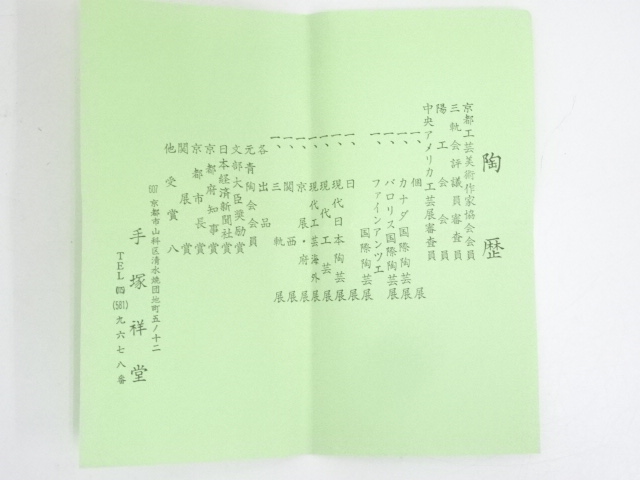 陶歴
京都工芸美術作家協会会員
三軌会評議員審査員
陽工会会員
中央アメリカ工芸展審査員
一、個展
一、カナダ国際陶芸展
一、バロリス国際陶芸展
一、ファインアンツエ国際陶芸展
一、日展
一、現代日本陶芸展
一、現代工芸展
一、現代工芸海外展
一、京展・府展
一、関西展
一、三軌展
各出品
元青陶会会員
文部大臣奨励賞
日本経済新聞社賞
京都府知事賞
京都市長賞
関展賞
他受賞八
607 京都市山科区清水焼団地町五ノ十二
手塚祥堂
TEL (581) 九六七八番